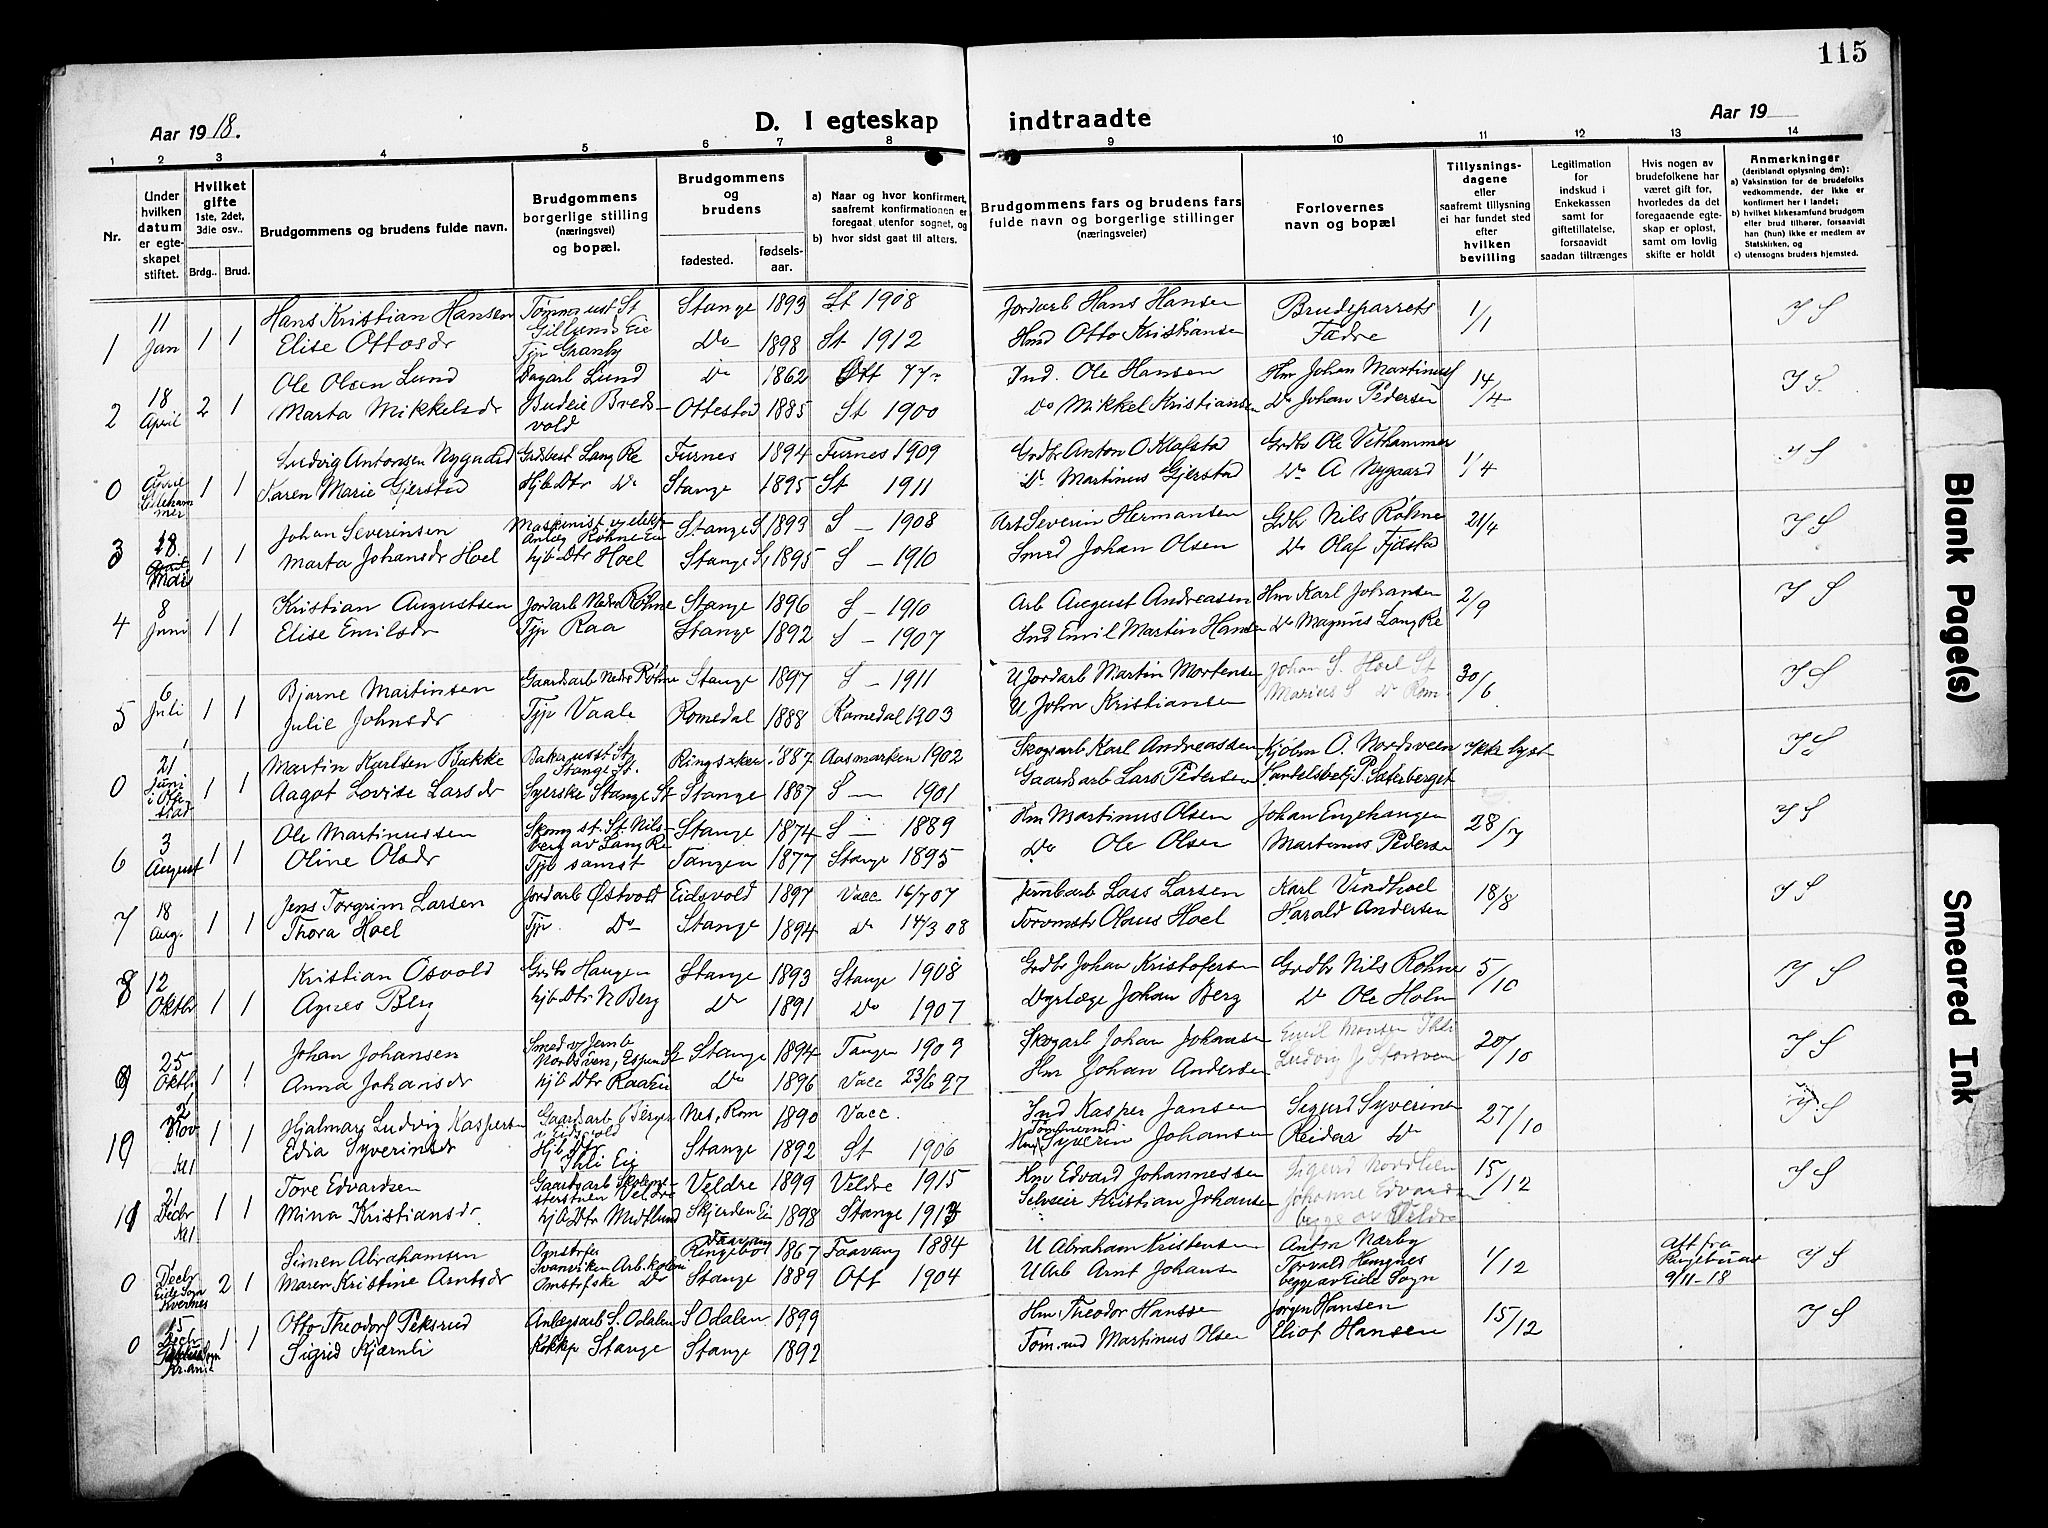 115
Aar 1918.
D. I egteskap indtraadte
Aar 19
1 2 3 4 5 6 7 8 9 10 11 12 13 14
Nr.
Under hvilken datum er egteskapet stiftet.
Hvilket gifte 1ste, 2det, 3die osv..
Brdg.. Brud.
Brudgommens og brudens fulde navn.
Brudgommens borgerlige stilling (næringsvei) og bopæl.
Brudgommens og brudens
fødested. fødselsaar.
a) Naar og hvor konfirmert, saafremt konfirmationen er foregaat utenfor sognet, og
b) hvor sidst gaat til alters.
Brudgommens fars og brudens fars fulde navn og borgerlige stillinger (næringsveier)
Forlovernes navn og bopæl
Tillysningsdagene eller saafremt tillysning ei har fundet sted efter hvilken bevilling
Legitimation for indskud i Enkekassen samt for giftetillatelse, forsaavidt saadan tiltrænges
Hvis nogen av brudefolkene har været gift før, hvorledes da det foregaaende egteskap er opløst, samt om lovlig skifte er holdt
Anmerkninger (deriblandt oplysning om):
a) Vaksination for de brudefolks vedkommende, der ikke er konfirmert her i landet;
b) hvilket kirkesamfund brudgom eller brud tilhører, forsaavidt han (hun) ikke er medlem av Statskirken, og
c) utensogns bruders hjemsted.
1 11 Jan 1 1 Hans Kristian Hansen Stange 1893 St 1908 Jordarb Hans Hansen Brudeparrets 1/1
Elise Ottosdr Tjp Granby Do 1898 St 1912 Hmd Otto Kristiansen Fædre
2 18 April 2 1 Ole Olsen Lund Dagarb Lund Do 1862 Ott 77 Ind. Ole Hansen Hmr Johan Martinus 14/4
Marta Mikkelsdr Budeie Bredsvold Ottestad 1885 St 1900 Do Mikkel Kristiansen Do Johan Pedersen
0 2 April Lillehammer 1 1 Ludvig Antonsen Nygaard Furnes 1894 Furnes 1909 Grdbr Anton O Klafstad Grdbr Ole Vethammer 1/4
Karen Marie Gjerstad Hjb Dtr Do Stange 1895 St 1911 Do Martinus Gjerstad Do A Nygaard
3 18. Mai 1 1 Johan Severinsen Maskinist v elektr Anlæg Røhne Eie Stange S 1893 S — 1908 Arb Severin Hermansen Gdbr Nils Røhne 21/4
Marta Johansdr Hoel hjb Dtr Hoel Stange S, 1895 S — 1910 Smed Johan Olsen Do Olaf Fjæstad
4 8 Juni 1 1 Kristian Augustsen Jordarb Nedre Røhne Stange 1896 S — 1910 Arb August Andreassen Hmr Karl Johansen 2/9
Elise Emilsdr Tjp Raa Stange 1892 S — 1907 Ind Emil Martin Hansen Do Magnus Lang Re
5 6 Juli 1 1 Bjarne Martinsen Gaardsarb Nedre Røhne Stange 1897 S — 1911 U Jordarb Martin Mortensen Johan S. Hoel St 30/6
Julie Johnsdr Tjp Vaale Romedal 1888 Romedal 1903 U John Kristiansen Marius S Do Rom.
0 21 Juni i Ottestad 1 1 Martin Karlsen Bakke Bakerusst St Stange St. Ringsaker 1887 Aasmarken 1902 Skogsarb Karl Andreassen Kjøbm O. Nordsveen Ikke lyst
Aagot Lovise Larsdr Syerske Stange St Stange 1887 S — 1901 Gaardsarb Lars Pedersen Handelsbetj P. Sæterberget
6 3 August 1 1 Ole Martinussen Stange 1874 S — 1889 Hm Martinus Olsen Johan Engehaugen 28/7
Oline Olsdr Tjp samst Tangen 1877 Stange 1895 Do Ole Olsen Martinus Pedersen
7 18 Aug. 1 1 Jens Torgrim Larsen Jordarb Østvold Eidsvold 1897 Vacc 16/7 07 Jernbarb Lars Larsen Karl Vindhoel 18/8
Thora Hoel Tjp. Do Stange 1894 Do 14/3 08 Torvmstr Olaus Hoel Harald Andersen
8 12 Oktbr 1 1 Kristian Osvold Grdbr Haugen Stange 1893 Stange 1908 Grdbr Johan Kristofersen Grdbr Nils Røhne 5/10
Agnes Berg hjb Dtr N Berg Do 1891 Do 1907 Dyrlæge Johan Berg Do Ole Holm
9 25 Oktbr 1 1 Johan Johansen Stange 1894 Tangen 1909 Skogarb Johan Johansen Emil Monsen Ihli 20/10
Anna Johansdr hjb Dtr Do 1896 Vacc 23/6 97 Hm Johan Andersen Ludvig J Storsveen
10 2 Nov 1 1 Hjalmar Ludvig Kaspersen Gaardsarb Berger i Eidsvold Nes, Rom 1890 Vacc. Ind Kasper Jansen Sigurd Syverinsen 27/10
Edia Syverinsdr Hjb Dtr Ihli Eie Stange 1892 St 1906 Hm Tømmermd Syverin Johansen Reidar Do
11 21 Decbr 1 1 Tore Edvardsen Gaardsarb Veldre 1899 Veldre 1915 Hm Edvard Johannessen Sigurd Nordlien 15/12
Mina Kristiansdr. hjb Dtr Midtlund Skjerden Eie 1898 Stange 1913 Selveier Kristian Johansen Johanne Edvardsen begge av Veldre
0 Decbr Eide Sogn Kvernes 2 1 Simen Abrahamsen Faavang Ringebo 1867 Faavang 1884 U Abraham Kristensen Anton Nærby 1/12 Att fra 9/11-18
Maren Kristine Arntsdr Do Stange 1889 Ott 1904 U Arb Arnt Johansen Torvald Hengnes begge av Eide Sogn
0 15 Decbr Kr.ania 1 1 Otto Theodorf Peksrud Anlægsarb S. Odalen S Odalen 1899 Hm Theodor Hanssen Jørgen Hansen 15/12
Sigrid Kjærnli Kokkp Stange Stange 1892 Tøm.md Martinus Olsen Eliot Hansen
Blank Page(s)
Smeared Ink